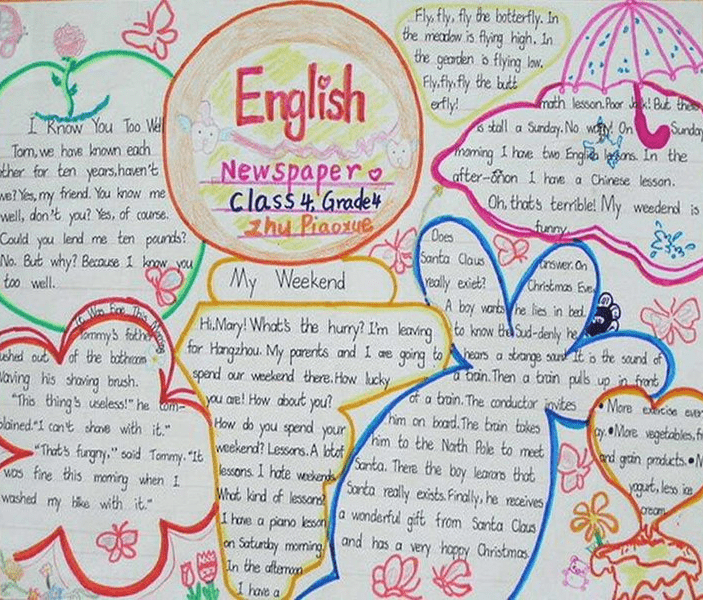 English
Newspaper
Class 4. Grade 4
Zhu Piaoxue
I Know You Too Well
Tom, we have known each
other for ten years, haven't
we? Yes, my friend. You know me
well, don't you? Yes, of course.
Could you lend me ten pounds?
No. But why? Because I know you
too well.
Fly, fly, fly the botterfly. In
the meadow is flying high. In
the gearden is flying low.
Fly, fly, fly the butt
erfly!
math lesson. Poor But there
is stall a Sunday. No On Sunday
morning I have two English In the
after-onon I have a Chinese lesson.
Oh, that's terrible! My weedend is
funny.
My Weekend
Hi, Mary! What's the hurry? I'm leaving
for Hangzhou. My parents and I are going to
spend our weekend there. How lucky
you are! How about you?
How do you spend your
weekend? Lessons. A lotof
lessons. I hate weekends
What kind of lessons?
I have a piano lesson
on Saturday morning
In the afternoon
I have a
It Was Fine This Morning
Tommy's father
ushed out of the bathroom
Waving his shaving brush.
"This thing's useless!" he com-
plained. "I can't shave with it."
"That's fungny," said Tommy. "It
was fine this morning when I
washed my bike with it."
Does
Santa Claus answer. On
really exiet? Christmas Eve,
A boy wants he lies in bed.
to know the Sud-denly he
hears a strange It is the sound of
a train. Then a train pulls up in front
of a train. The conductor invites
him on board. The train takes
him to the North Pole to meet
Santa. There the boy learons that
Santa really exists. Finally, he receives
a wonderful gift from Santa Claus
and has a very happy Christmas.
• More exercise ever
ay. • More vegetables, fr
and grain products. • M
yogurt, less ice
cream.